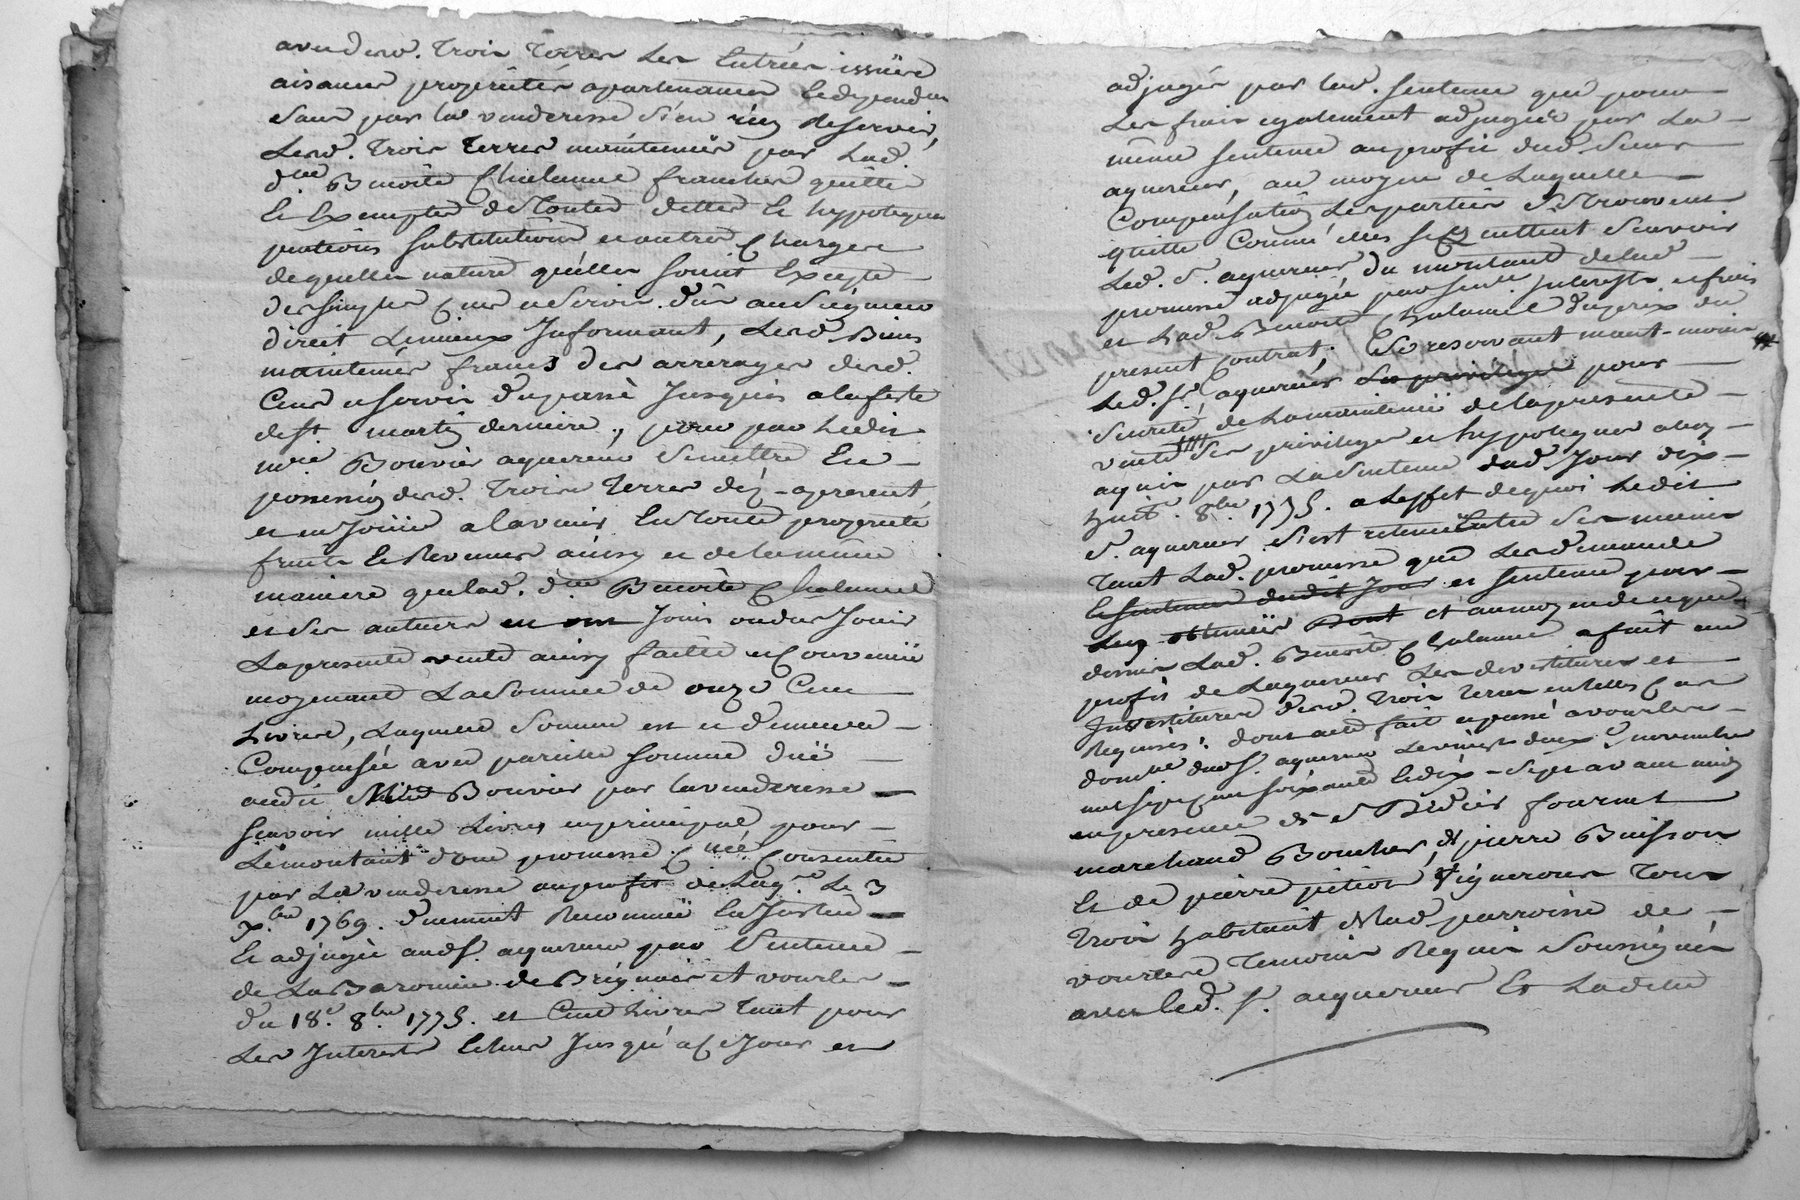 avec lesd. Trois Terres Les Entrées issües
aisances proprietés apartenances & dependan
sans par la venderesse s'en rien Reserver,
Lesd. Trois Terres maintenües par Lad.
d.lle Benoite Chalamel franches quitte
& Exemptes de Toutes dettes & hypoteques
pentions substitutions et autres Charges
de quelles nature qu'elles soient Excepte
des simples Cens et servis. dûs au Seigneur
direct Le mieux Informant, Lesd. Biens
maintenus francs des arrerages desd.
Cens et servis du passé Jusques a la feste
de st. martin derniere., pour par Ledit
Bouvier aquereur Se mettre En
possession desd. Trois Terres dez-apresent,
et en Joüir a l'avenir En Toute proprieté
fruits & Revenus ainsy et de la même
maniere que lad. d.lle Benoite Chalamel
et ses auteurs en ont Joüis ou du Joüir
La presente vente ainsy faitte et Convenüe
moyenant La Somme de onze Cent
Livres, Laquelle Somme est et demeure
Compensée avec pareille Somme düe
audit Bouvier par la venderesse
Scavoir mille Livres en principal pour
Le montant d'une promesse Consentie
par La venderesse au profit de L'aq.r Le 3
X.bre 1769. düement Reconnüe En Justice
& adjugée aud. s. aquereur par Sentence
de La Baronnie de Brignais et vourles
du 18.e 8.bre 1775. et Cent Livres Tant pour
Les Interests Echus Jusqu'a Ce Jour et
adjugés par lad. Sentence que pour
Les frais egalement adjugés par La
même Sentence au profit dud. Sieur
aquereur, au moyen de Laquelle
Compensation Les parties se Trouvent
quitte Comme elles se quittent Scavoir
Led. s. aquereur, du montant de lad.
promesse adjugée par sent. Interests et frais
et Lad. Benoite Chalamel du prix du
present Contrat; Se reservant neant-moins
Led. s.r aquereur Les privileges pour
Seureté de La maintenüe de La presente
vente Ses privileges et hypoteques a luy
aquis par La Sentence dud. Jour dix
huit. 8.bre 1775. a L'effet de quoi Ledit
s. aquereur s'est retenu Entre Ses mains
Tant Lad. promesse que Les demande
& Sentence dudit Jour et Sentence par
Luy obtenües dont et au moyen de ce que
dessus Lad. Benoite Chalamel a fait au
profit de L'aquereur Les devestitures et
Investitures desd. Trois Terres en telles Cas
Requises. dont acte fait et passé a vourles
domicile dud. s. aquereur Le vingt deux.e novembre
mil sept Cent soixante & dix-sept avant midy
en presence de s. Fournet
marchand Boucher, de pierre Buisson
& de pierre pition Vigneron Tous
Trois habitant de Lad. parroisse de
vourles Temoins Requis Soussignés
avec led. s. aquereur Et La ditte